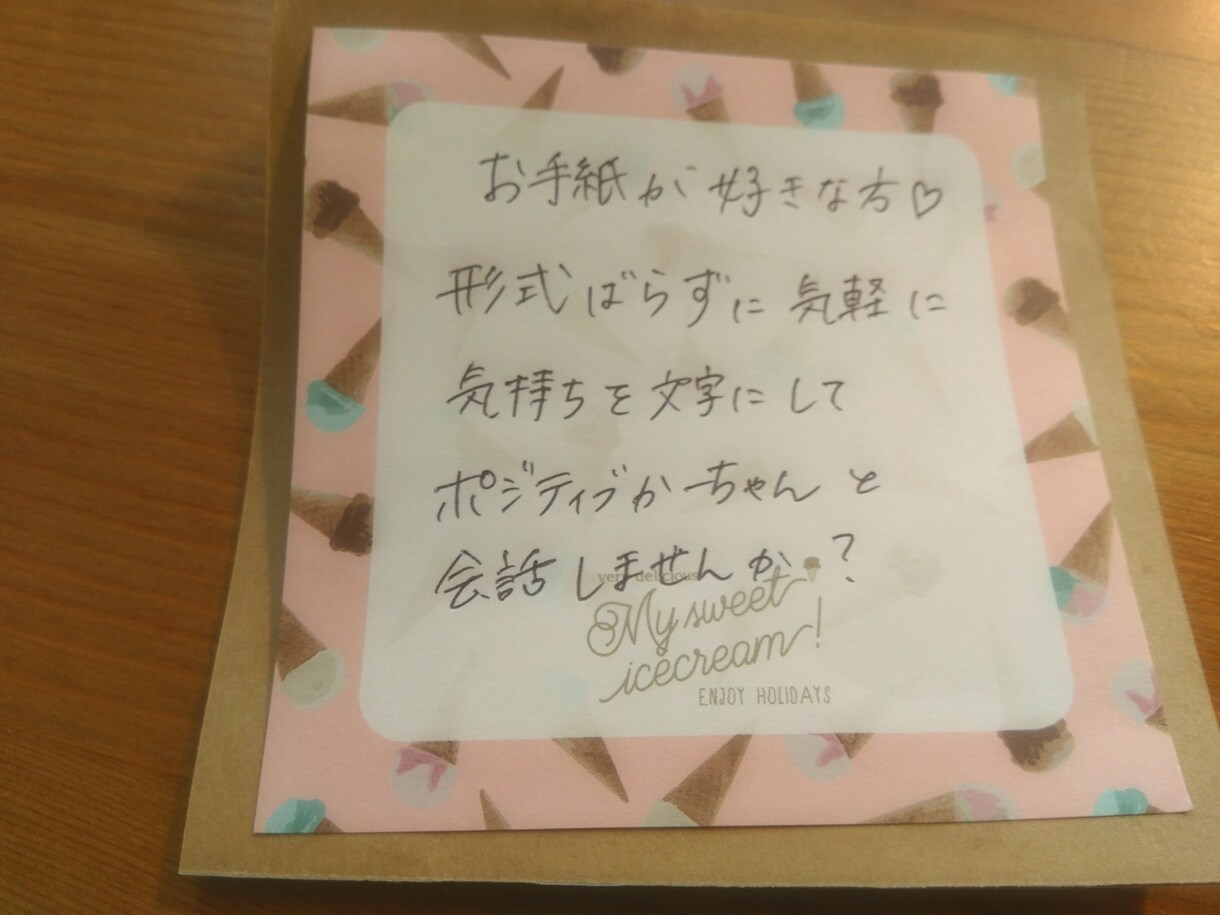 お手紙が好きな方♡
形式ばらずに気軽に
気持ちを文字にして
ポジティブかーちゃんと
会話しませんか?
very delicious
My sweet
icecream!
ENJOY HOLIDAYS